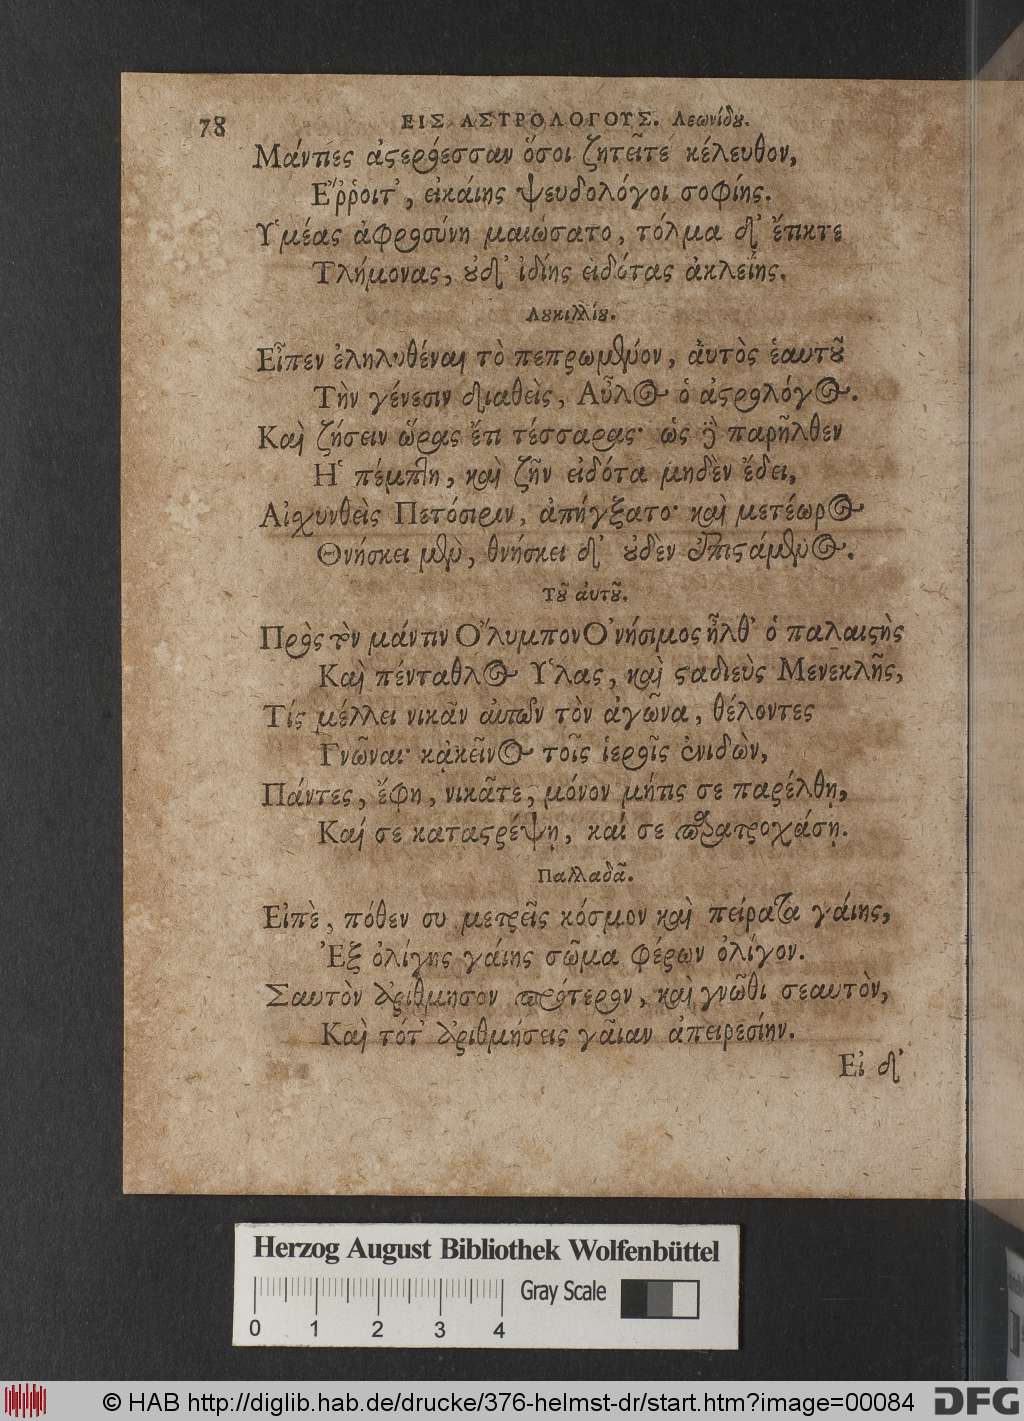 78 ΕΙΣ ΑΣΤΡΟΛΟΓΟΥΣ. Λεωνίδου.
Μάντιες ἀστερόεσσαν ὅσοι ζητεῖτε κέλευθον,
Ἔῤῥοιτ', εἰκαίης ψευδολόγοι σοφίης.
Ὑμέας ἀφροσύνη μαιώσατο, τόλμα δ' ἔτικτε
Τλήμονας, οὐδ' ἰδίης εἰδότας ἀκλεΐης.
Λουκιλλίου.
Εἶπεν ἐληλυθέναι τὸ πεπρωμένον, ἀυτὸς ἑαυτοῦ
Τὴν γένεσιν διαθεὶς, Αὖλος ὁ ἀστρολόγος.
Καὶ ζήσειν ὥρας ἔτι τέσσαρας· ὡς δὲ παρῆλθεν
Ἡ πέμπτη, καὶ ζῆν εἰδότα μηδὲν ἔδει,
Αἰχυνθεὶς Πετόσιριν, ἀπήγξατο· καὶ μετέωρος
Θνήσκει μὲν, θνήσκει δ' οὐδὲν ἐπιστάμενος.
Τοῦ ἀυτοῦ.
Πρὸς τὸν μάντιν Ὄλυμπον Ὀνήσιμος ἦλθ' ὁ παλαιστὴς
Καὶ πένταθλος Ὕλας, καὶ σταδιεὺς Μενεκλῆς,
Τίς μέλλει νικᾶν ἀυτῶν τὸν ἀγῶνα, θέλοντες
Γνῶναι· κᾀκεῖνος τοῖς ἱεροῖς ἐνιδὼν,
Πάντες, ἔφη, νικᾶτε, μόνον μήτις σε παρέλθῃ,
Καί σε καταστρέψῃ, καί σε παρατροχάσῃ.
Παλλαδᾶ.
Εἰπὲ, πόθεν συ μετρεῖς κόσμον καὶ πείρατα γάιης,
Ἐξ ὀλίγης γάιης σῶμα φέρων ὀλίγον.
Σαυτὸν ἀρίθμησον πρότερον, καὶ γνῶθι σεαυτὸν,
Καὶ τότ' ἀριθμήσεις γαῖαν ἀπειρεσίην.
Εἰ δ'
Herzog August Bibliothek Wolfenbüttel
Gray Scale
0 1 2 3 4
© HAB http://diglib.hab.de/drucke/376-helmst-dr/start.htm?image=00084 DFG